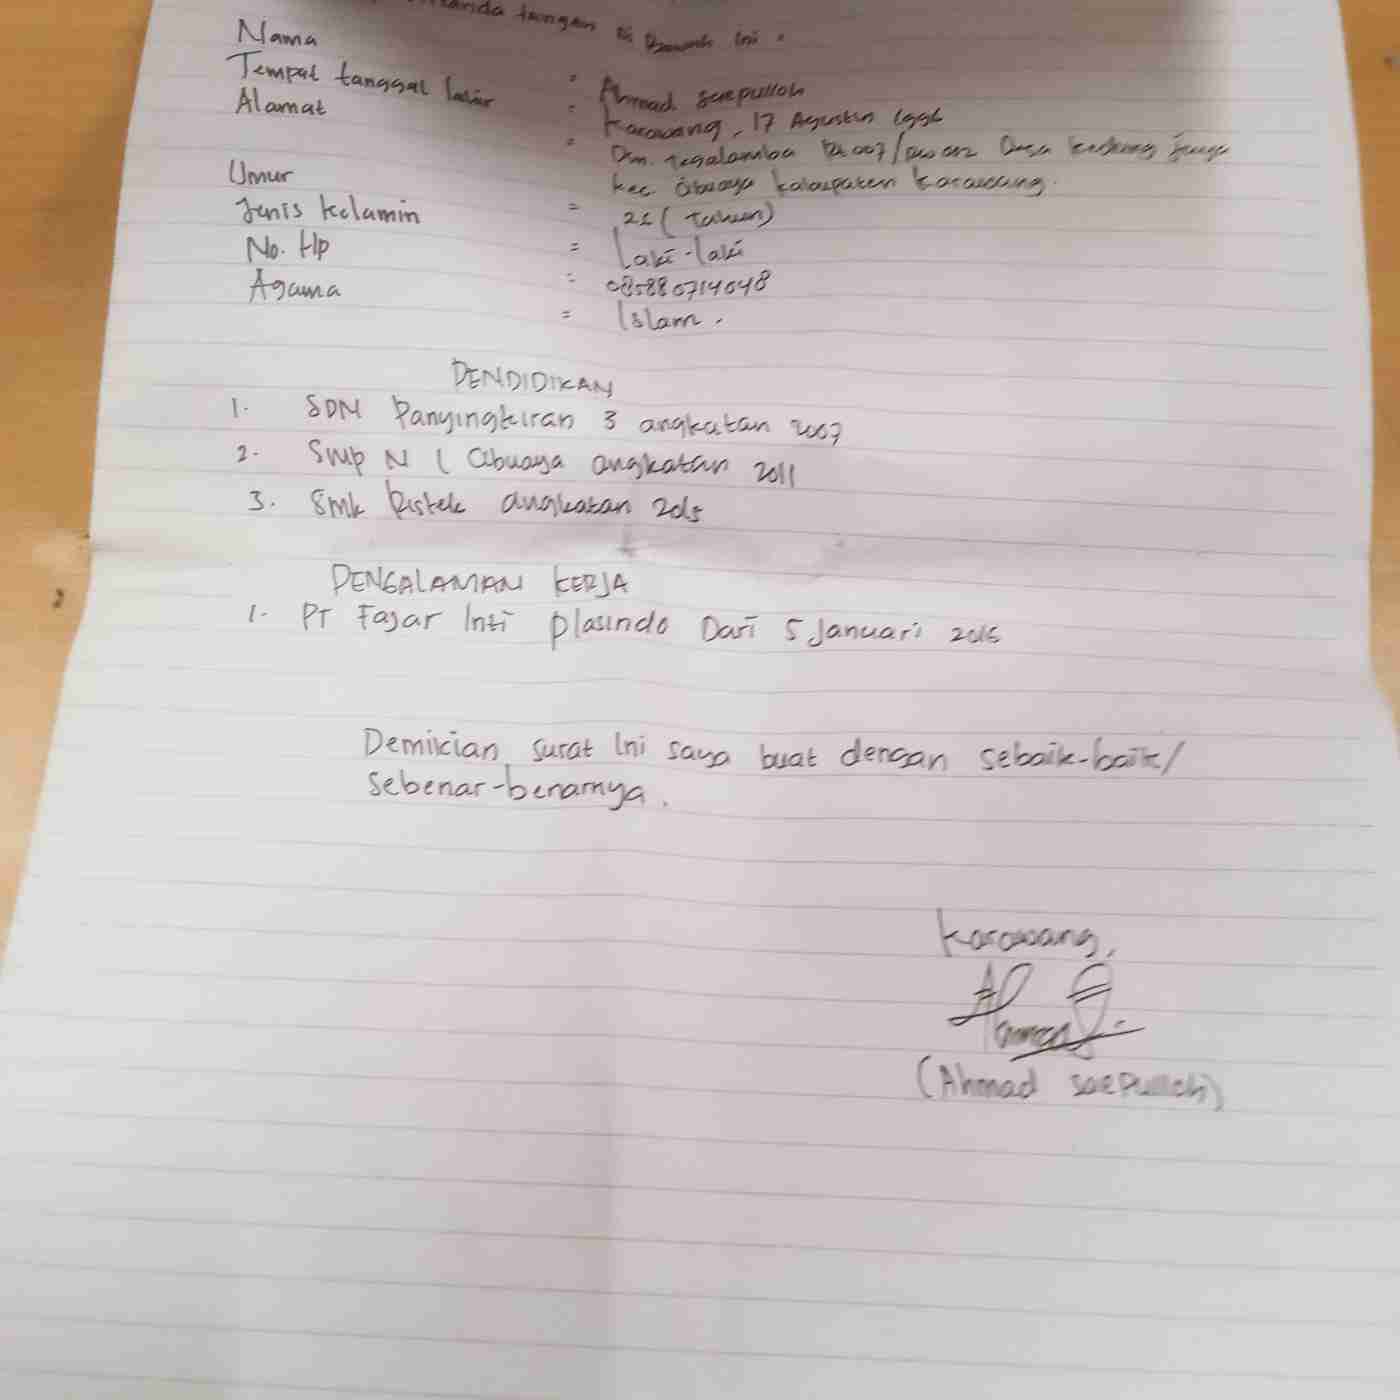 tanda tangan di bawah ini :
Nama : Ahmad Saepulloh
Tempat tanggal lahir : Karawang, 17 Agustus 1996
Alamat : Dsn. Tegalamba Rt 007/Rw 002 Desa Kedung Jeruju
Kec. Cibuaya kabupaten Karawang.
Umur = 21 (Tahun)
Jenis Kelamin = Laki-laki
No. Hp = 085880714048
Agama = Islam.
PENDIDIKAN
1. SDN Panyingkiran 3 angkatan 2007
2. Smp N 1 Cibuaya angkatan 2011
3. Smk Ristek angkatan 2015
PENGALAMAN KERJA
1. PT Fajar Inti Plasindo Dari 5 Januari 2016
Demikian surat Ini saya buat dengan sebaik-baik/
Sebenar-benarnya.
Karawang,
Ahmad
(Ahmad Saepulloh)